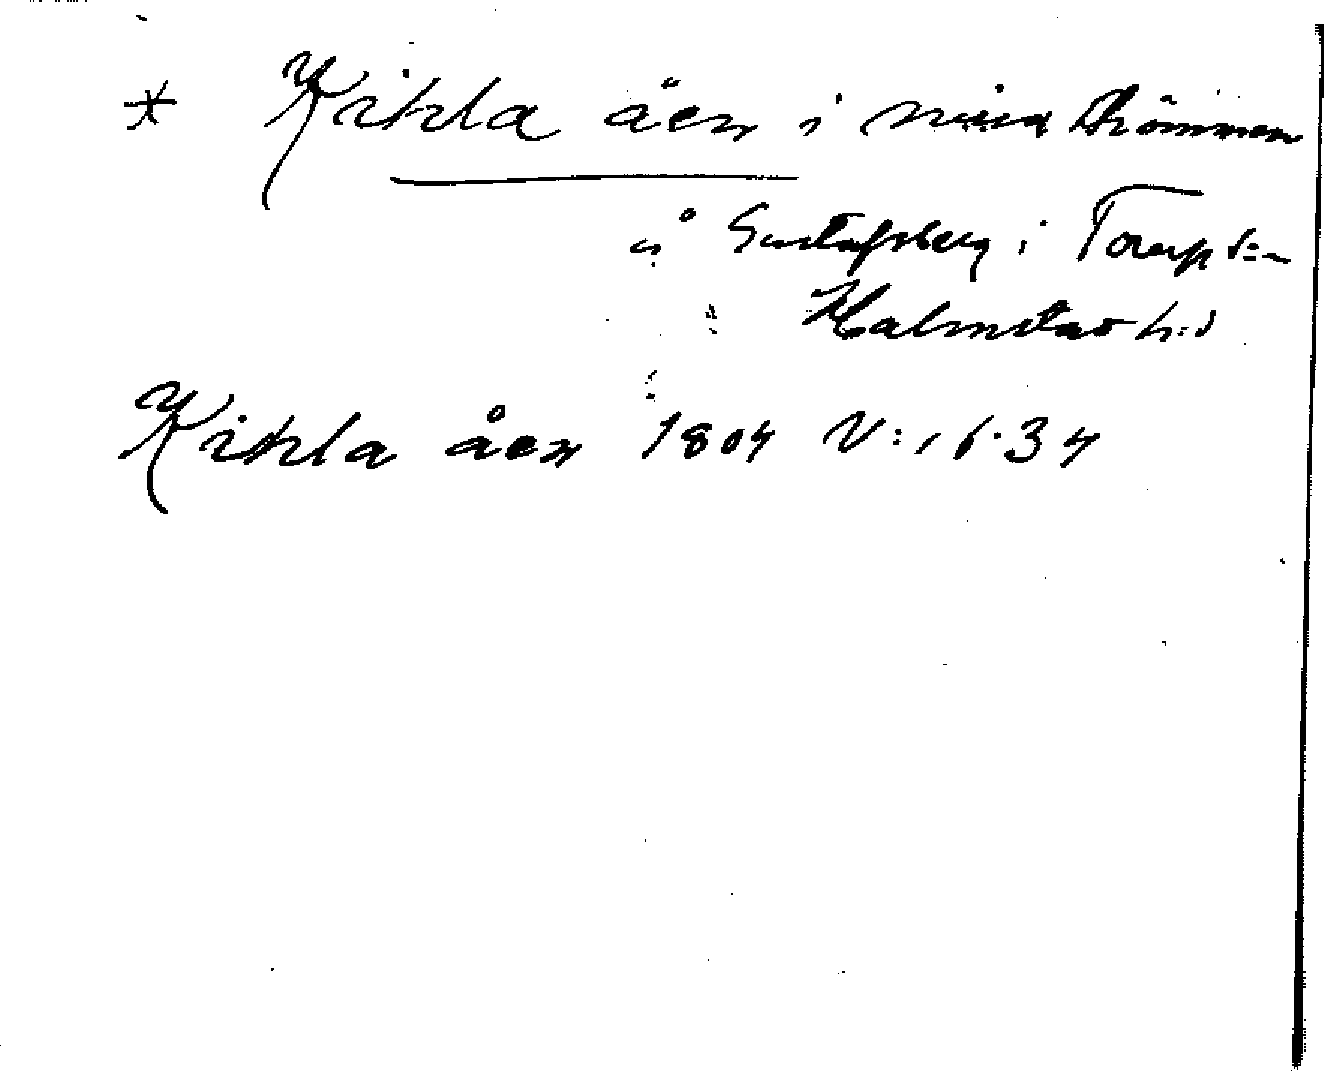 * Kikla åen i
å Gustafsberg i Torup s:n
Halmstad h:d
Kikla åen 1804 V:16.34